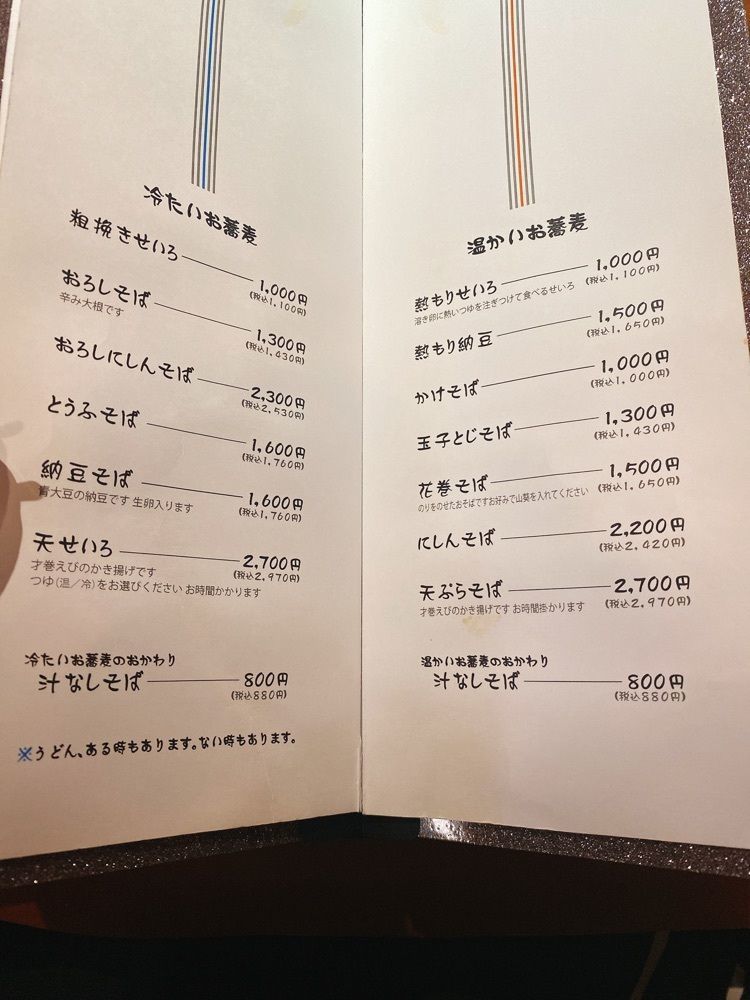 冷たいお蕎麦
粗挽きせいろ 1,000円
(税込1,100円)
おろしそば 1,300円
辛み大根です (税込1,430円)
おろしにしんそば 2,300円
(税込2,530円)
とうふそば 1,600円
(税込1,760円)
納豆そば 1,600円
青大豆の納豆です 生卵入ります (税込1,760円)
天せいろ 2,700円
才巻えびのかき揚げです (税込2,970円)
つゆ(温/冷)をお選びください お時間かかります
冷たいお蕎麦のおかわり
汁なしそば 800円
(税込880円)
※うどん、ある時もあります。ない時もあります。
温かいお蕎麦
熱もりせいろ 1,000円
溶き卵に熱いつゆを注ぎつけて食べるせいろ (税込1,100円)
熱もり納豆 1,500円
(税込1,650円)
かけそば 1,000円
(税込1,000円)
玉子とじそば 1,300円
(税込1,430円)
花巻そば 1,500円
のりをのせたおそばですお好みで山葵を入れてください (税込1,650円)
にしんそば 2,200円
(税込2,420円)
天ぷらそば 2,700円
才巻えびのかき揚げです お時間掛かります (税込2,970円)
温かいお蕎麦のおかわり
汁なしそば 800円
(税込880円)